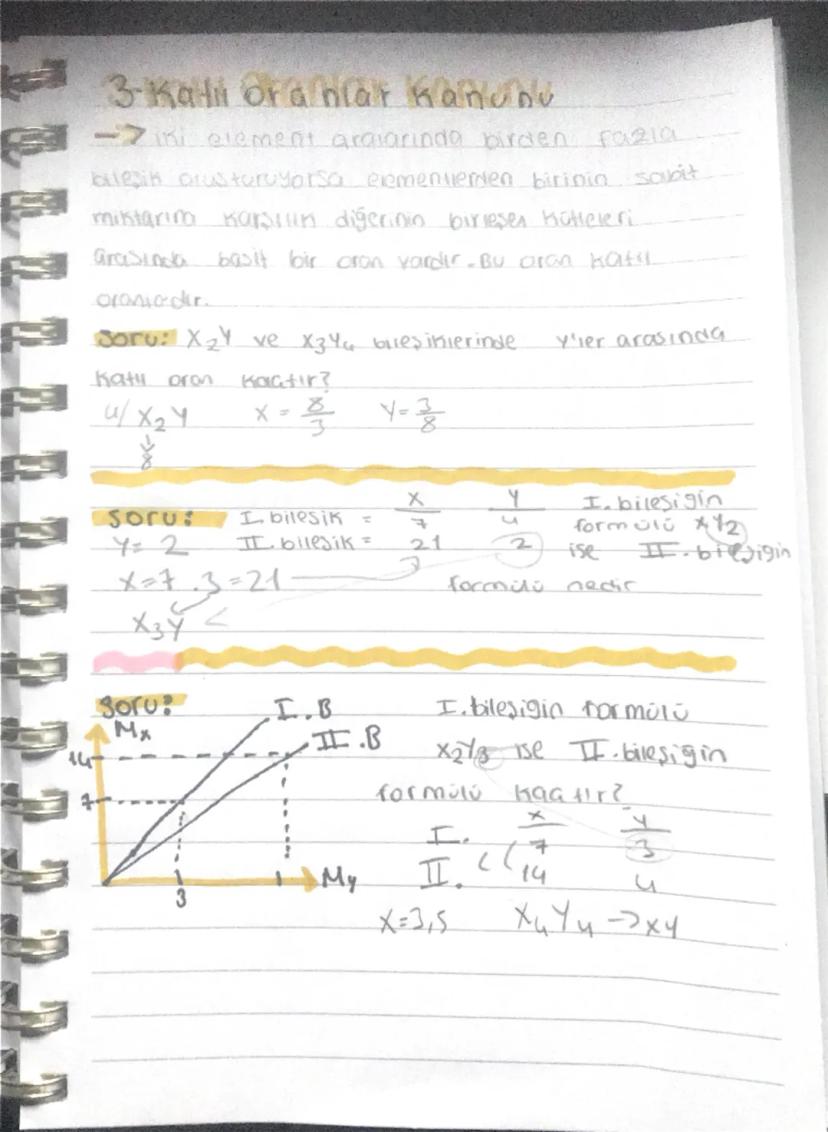 3-Katlı Oranlar Kanunu
→ iki element aralarında birden fazla
bileşik oluşturuyorsa elementlerden birinin sabit
miktarına karşılık diğerinin birleşen kütleleri
arasında basit bir oran vardır. Bu oran katlı
orandır.
Soru: X₂Y ve X₃Y₄ bileşiklerinde Y'ler arasında
katlı oran kaçtır?
4/ X₂Y X = 8/3 Y = 3/8
8
X Y I. bileşiğin
Soru: I. bileşik = 7 4 formülü XY₂
Y = 2 II. bileşik = 21 2 ise II. bileşiğin
X = 7 . 3 = 21 formülü nedir
X₃Y
Soru? I. B I. bileşiğin formülü
Mx II. B X₂Y₃ ise II. bileşiğin
14
7 formülü kaçtır?
X Y
I. 7 3
II. 14 4
My
3
X = 3,5 X₄Y₄ → XY